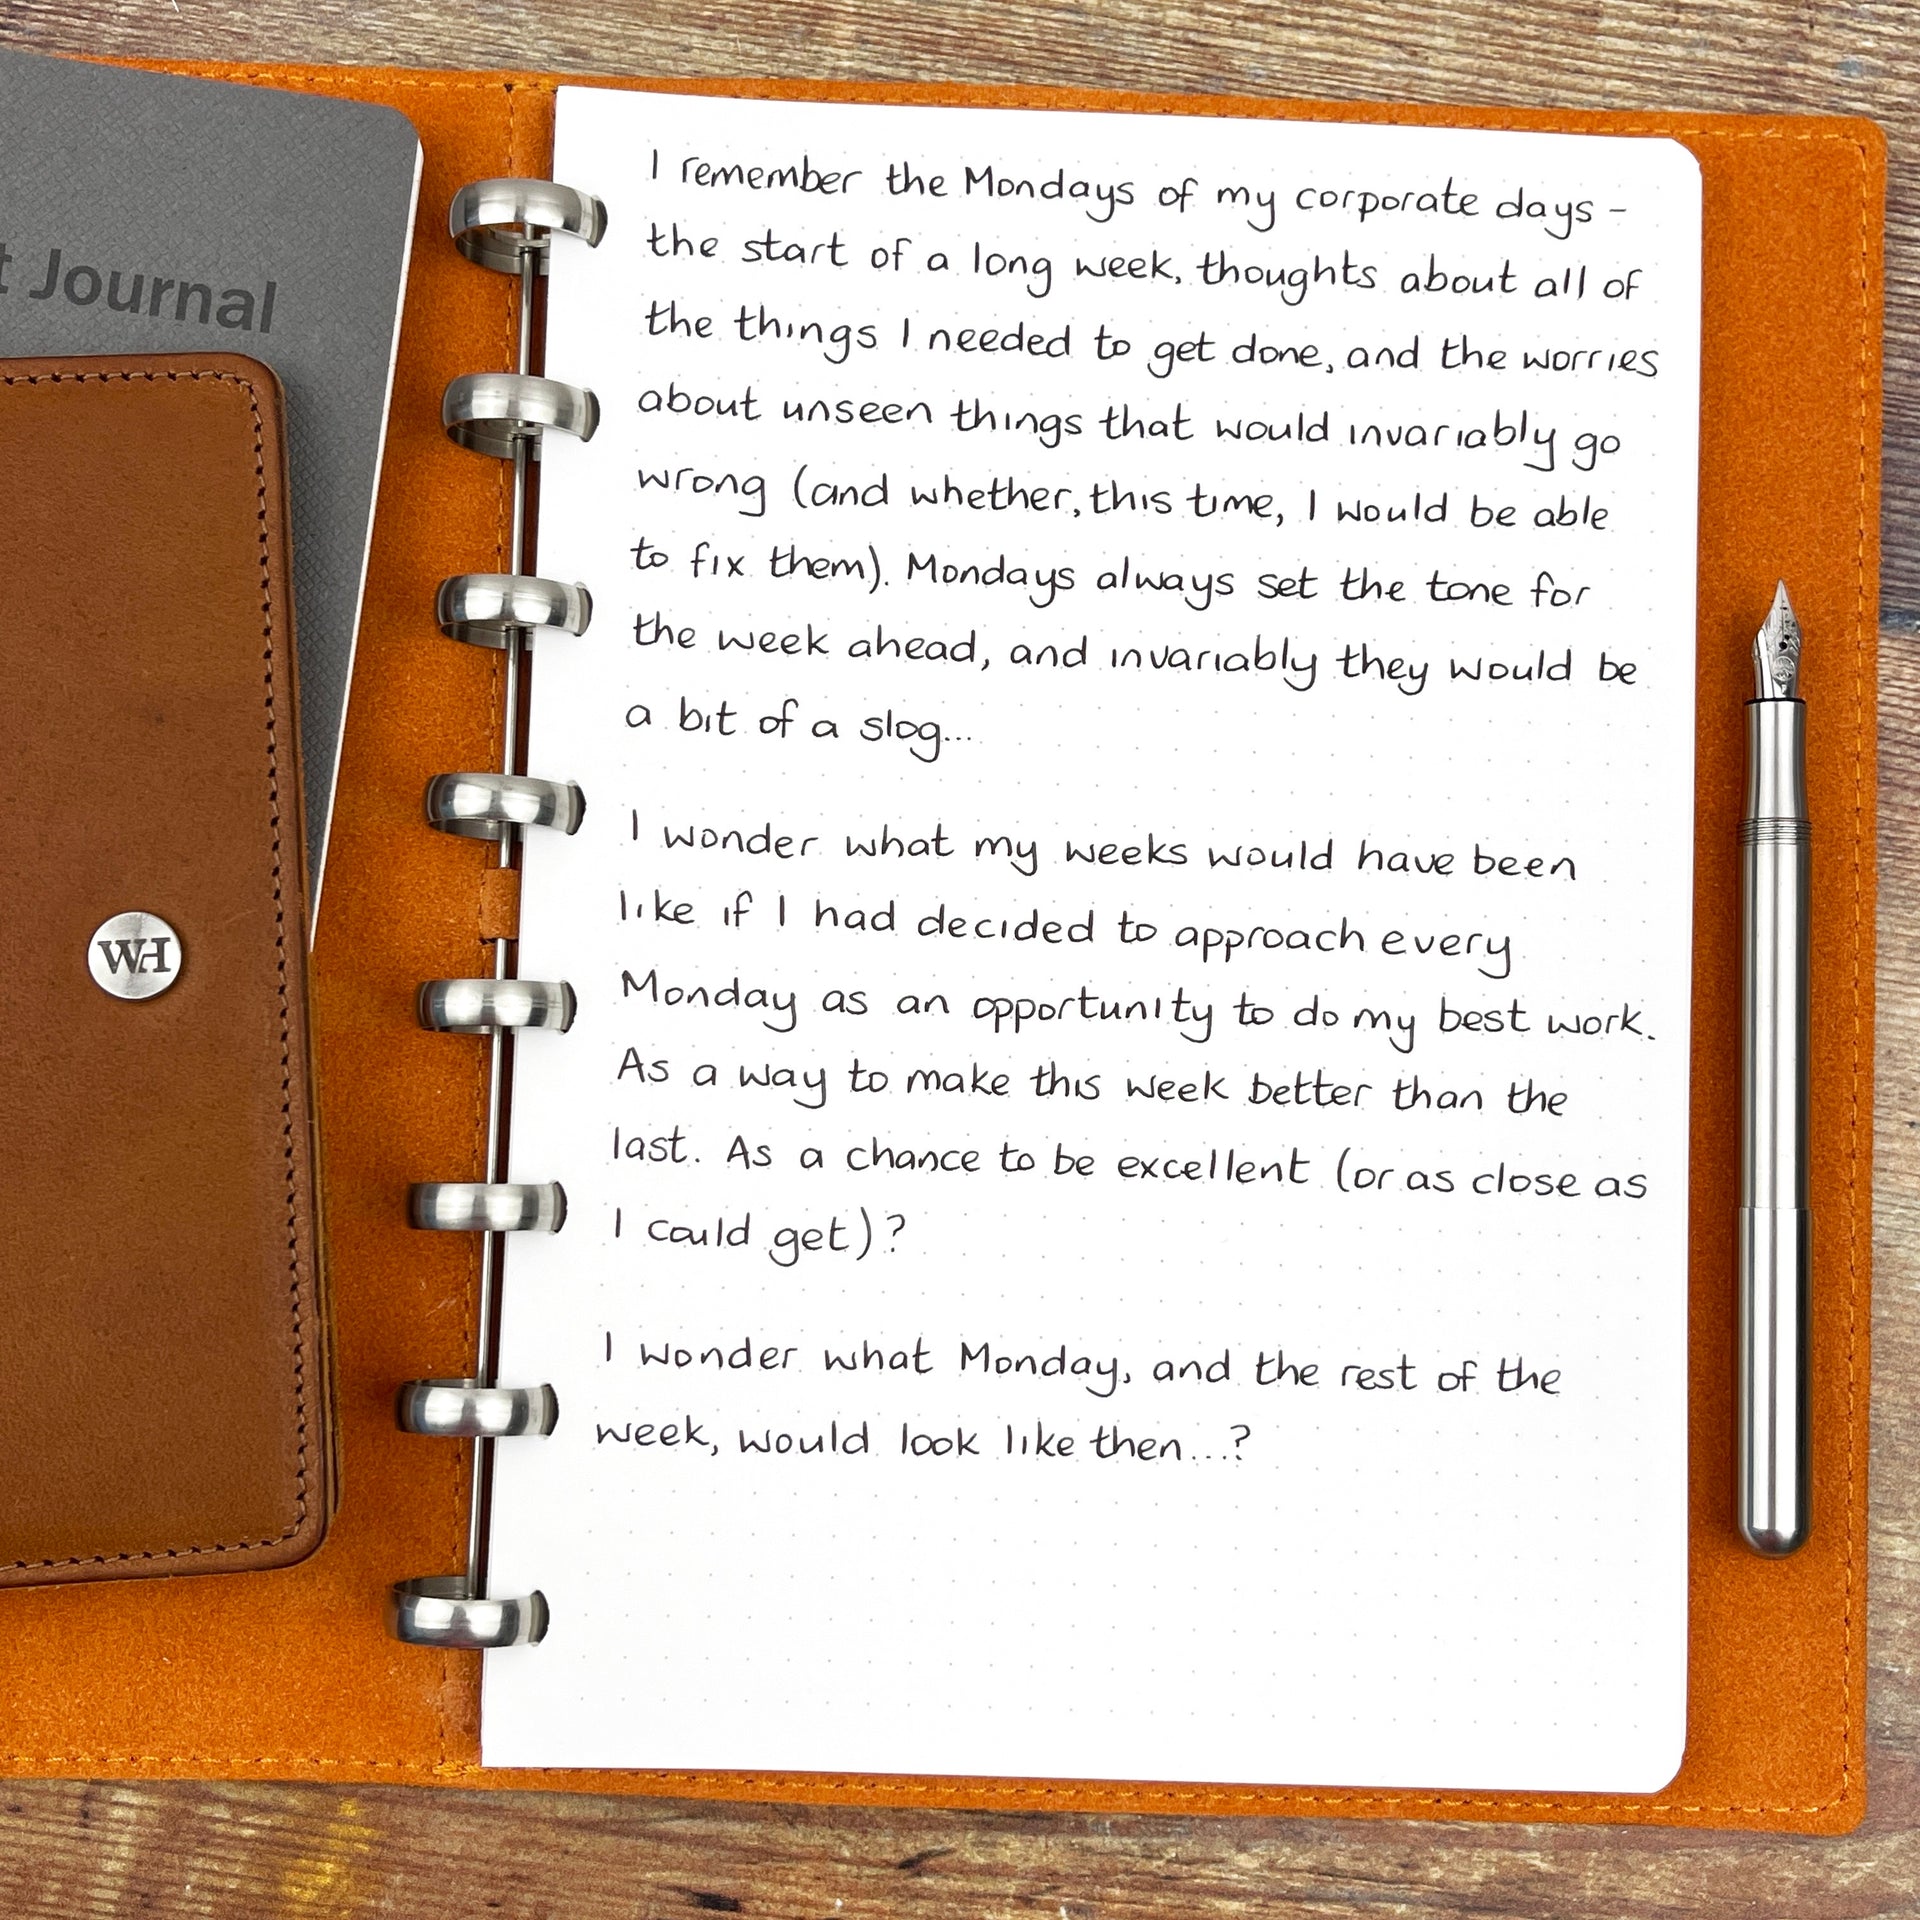 t Journal
WH
I remember the Mondays of my corporate days -
the start of a long week, thoughts about all of
the things I needed to get done, and the worries
about unseen things that would invariably go
wrong (and whether, this time, I would be able
to fix them). Mondays always set the tone for
the week ahead, and invariably they would be
a bit of a slog...
I wonder what my weeks would have been
like if I had decided to approach every
Monday as an opportunity to do my best work.
As a way to make this week better than the
last. As a chance to be excellent (or as close as
I could get)?
I wonder what Monday, and the rest of the
week, would look like then...?